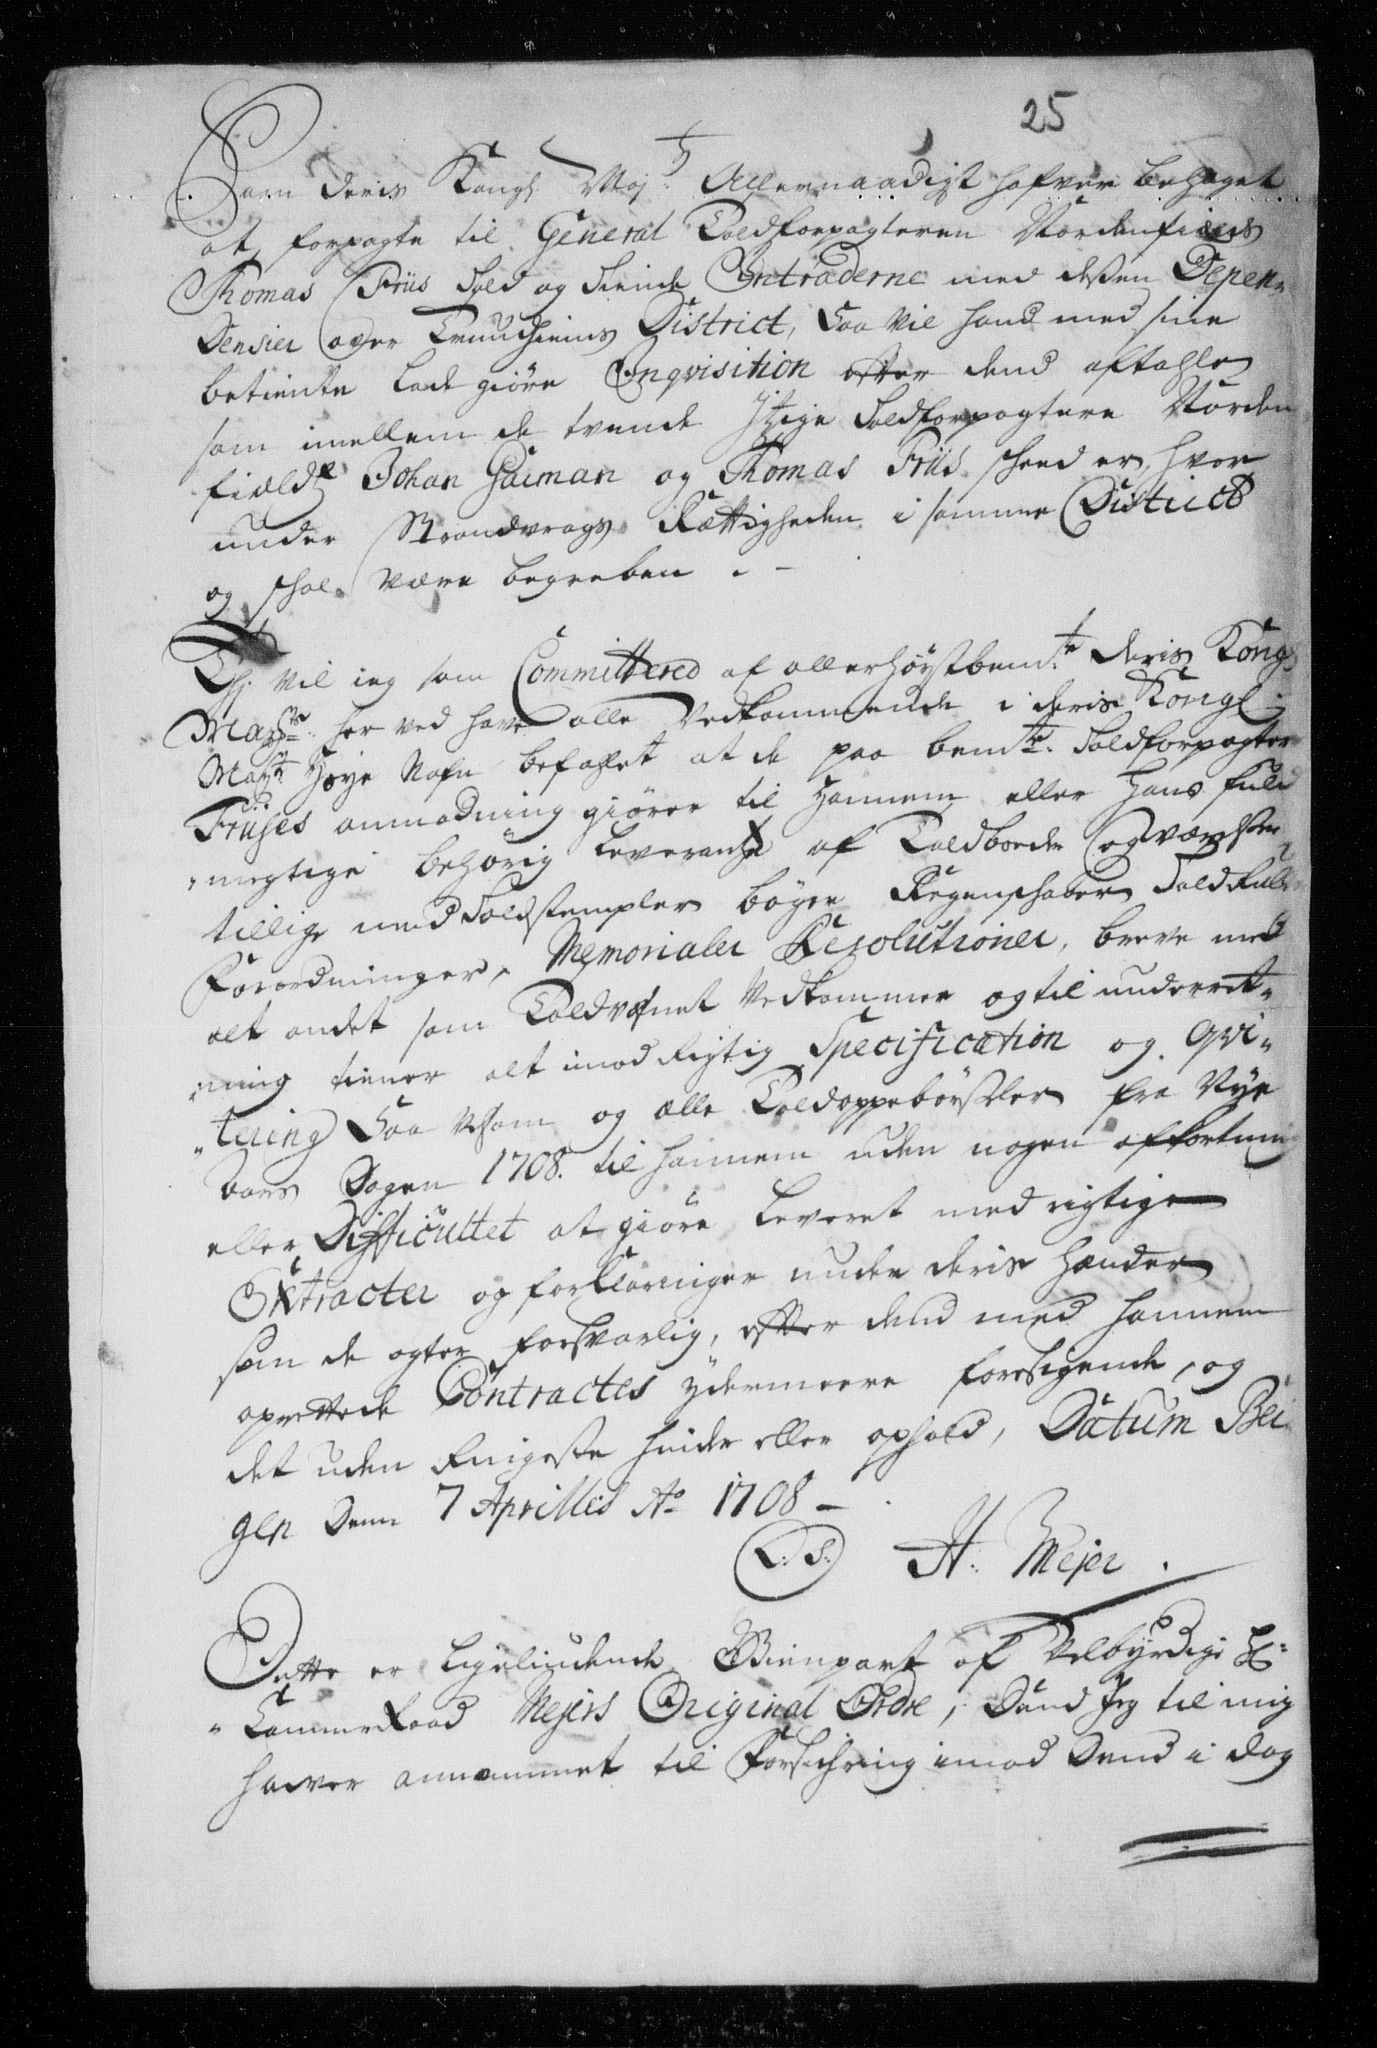 25
Saasom deris Kongl Maj:t Allernaadigst hafver behaget
at forpagte til General Toldforpagteren Nordenfields
Thomas Friis Told og Tiende Intraderne med dessen Depen-
densier over Trundhiems District, Saa vil hand med sine
betiente lade giøre Inqvisition efter dend aftahle
som imellem de tvende Itzige Toldforpagtere Norden
fields Johan Gaiman og Thomas Friis scheed er, hvor
under Strandvrags Rættigheden i samme District
og schal være begreben. -
Thj vil ieg som Committered af allerhøystbem:te deris Kongl
Mays:ts her ved have alle vedkommende i deris Kongl
Mays:ts Høye Nafn befahlet at de paa bem:te Toldforpagter
Friises anmodning giører til Hannem eller Hans fuld
-megtige behørig leverantze af Toldboder og værelser
tillige med Toldstempler bøger Regenschaber Toldruller
Forordninger, Memorialer Resolutioner, breve med
alt andet som Toldvæsenet vedkommer og til underret-
-ning tiener alt imod rigtig Specification og qvi-
-tering Saa velsom og alle Toldoppebørseler fra Nye
aars Dagen 1708. til hannem uden nogen afkortning
eller Difficultet at giøre leveret med rigtige
Extracter og forklaringer under deris hænder
som de agter forsvarlig, efter dend med hannem
oprettede Contractes ydermeere foresigende, og
det uden ringeste hinder eller ophold, Datum Ber
gen Denn 7 Aprillis A:o 1708 -
L: S: H: Mejer.
Dette er ligelydende Gienpart af Velbyrdige Hr:
-CammerRaad Mejers Original Ordre, Dend Jeg til mig
haver annammet til Forsichring imod Dend i dag